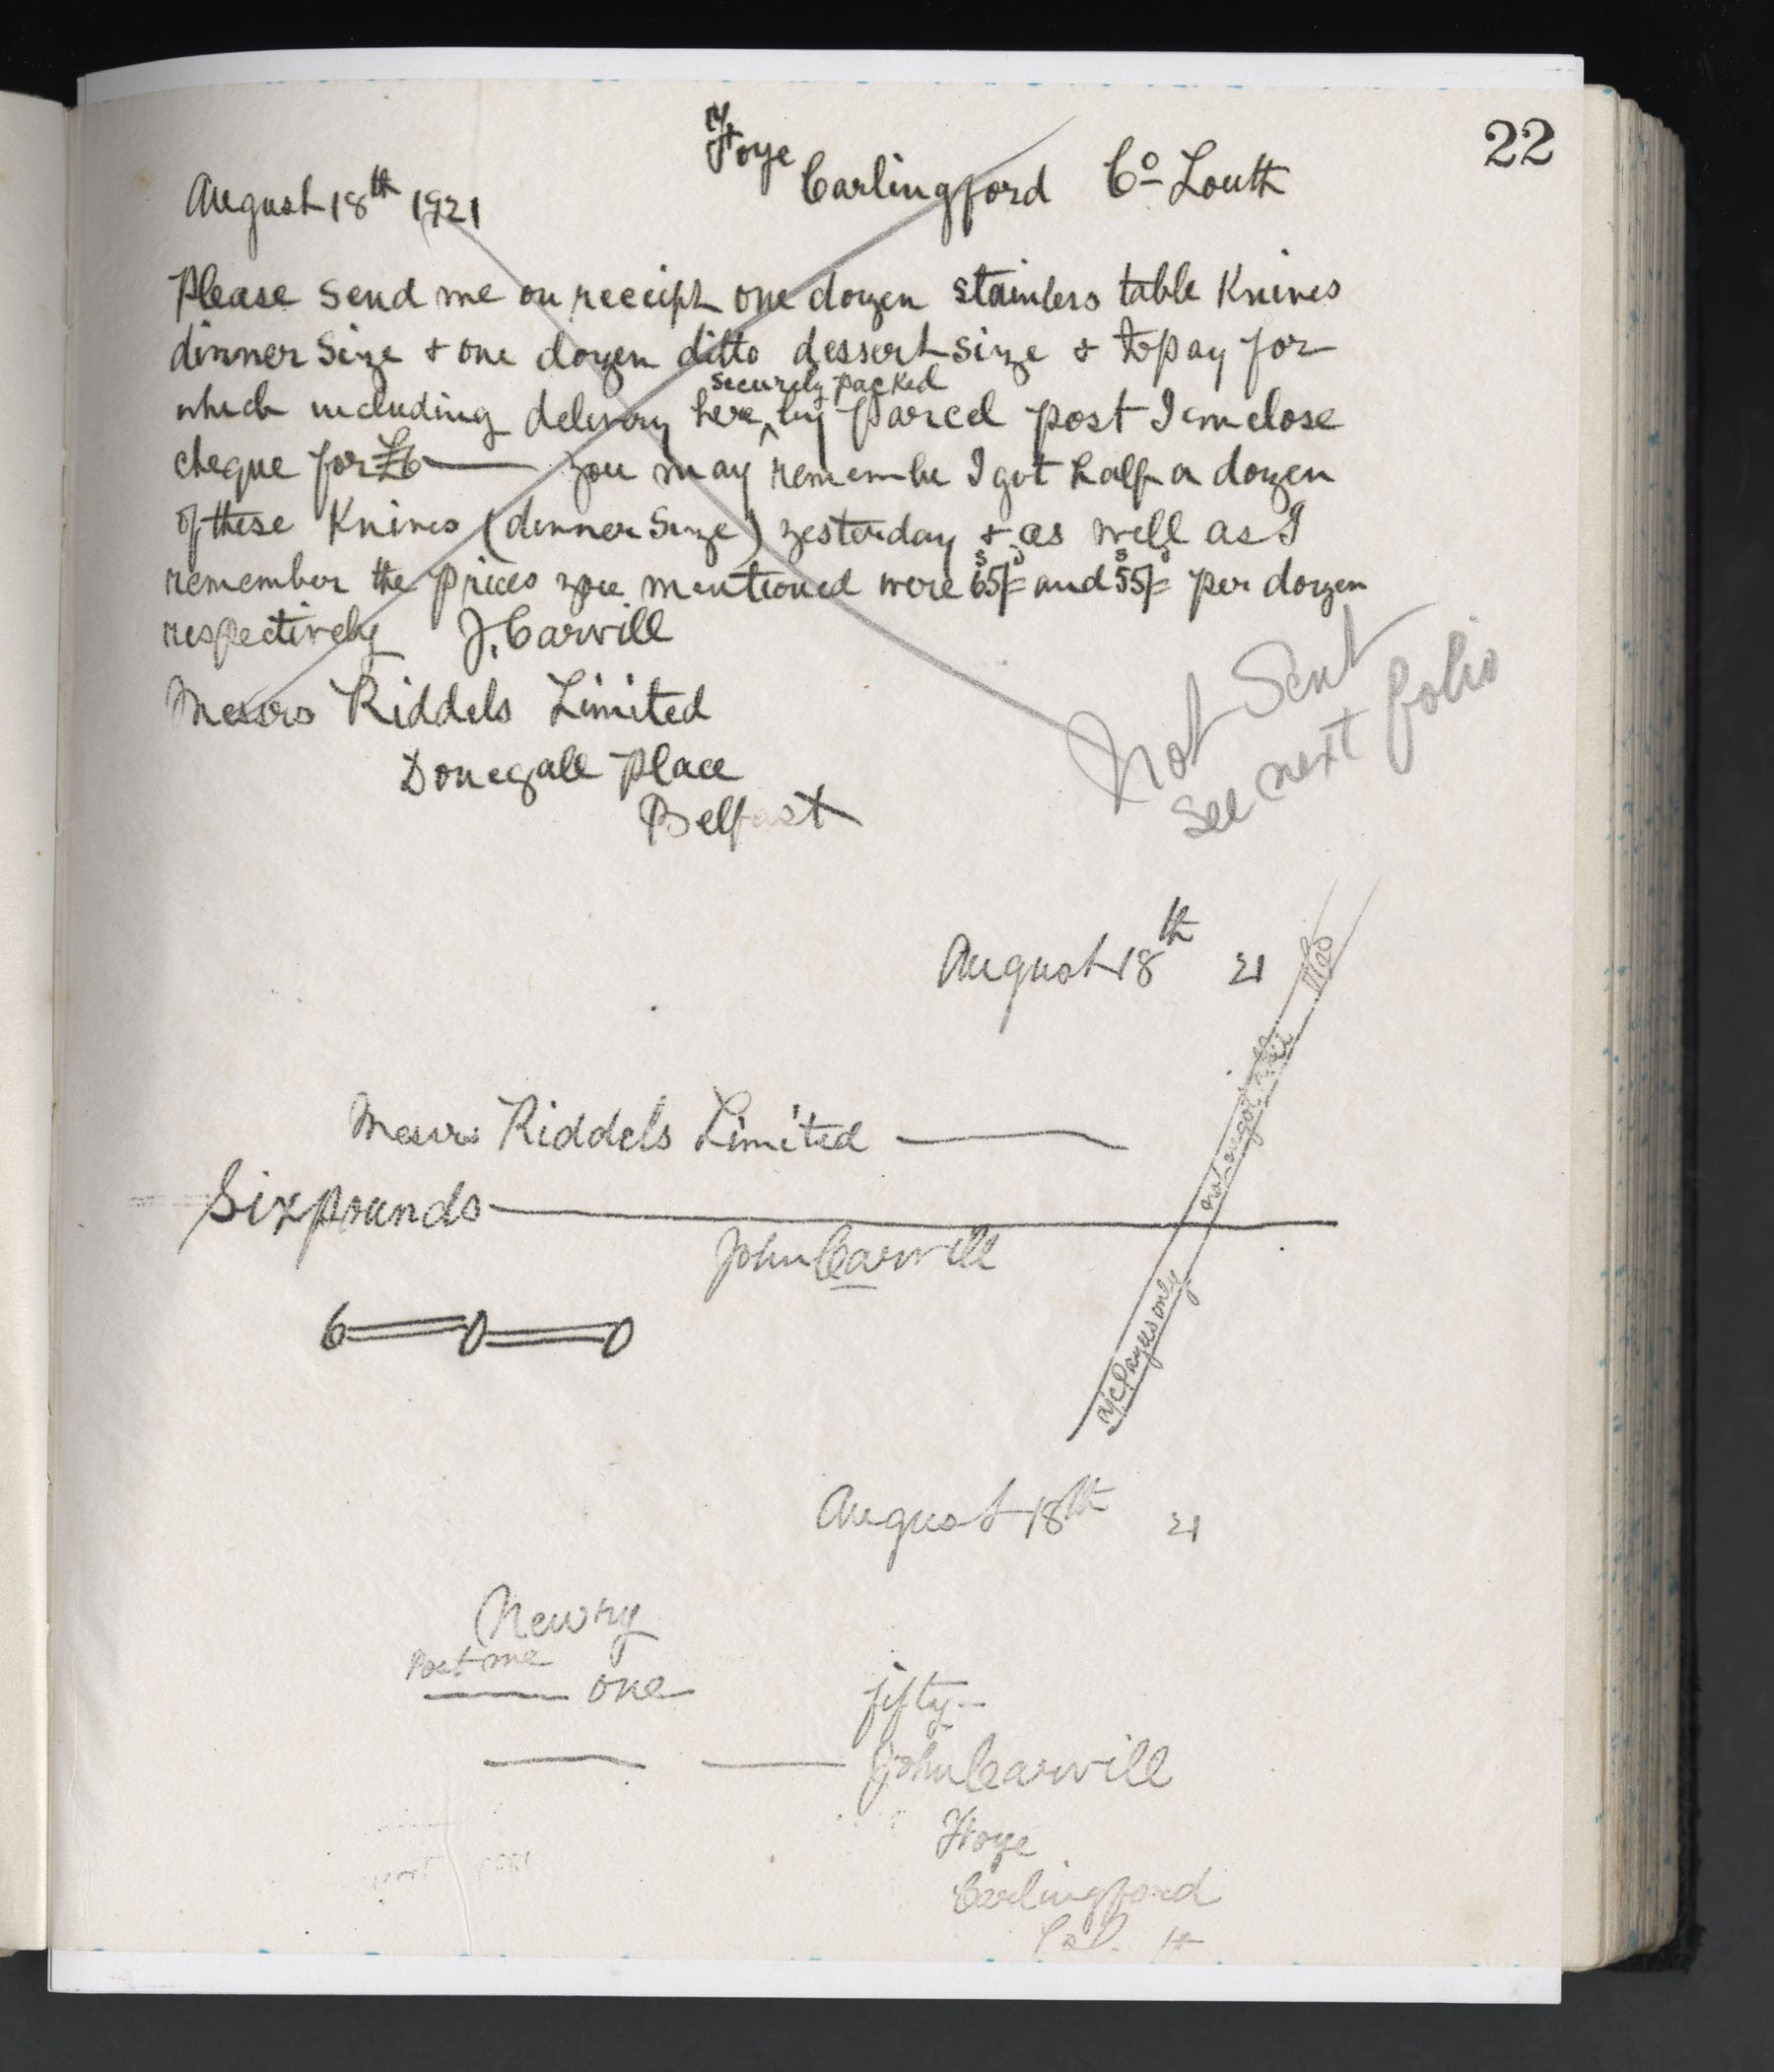 22
Foye
Carlingford Co Louth
August 18th 1921
Please send me on receipt one dozen stainless table Knives
dinner size + one dozen ditto dessert size + to pay for
securely packed
which including delivery here ^ by parcel post I enclose
cheque for £6 — you may remember I got half a dozen
of these Knives (dinner size) yesterday + as well as I
remember the prices you mentioned were 65/= and 55/= per dozen
respectively J. Carvill
Messrs Riddels Limited
Donegall Place
Belfast
Not Sent
See next folio
August 18th 21
Messrs Riddels Limited —
Six pounds —
John Carvill
6 = 0 = 0
a/c Payees only
August 18th 21
Newry
Post me
— one
fifty —
— — John Carvill
Foye
Carlingford